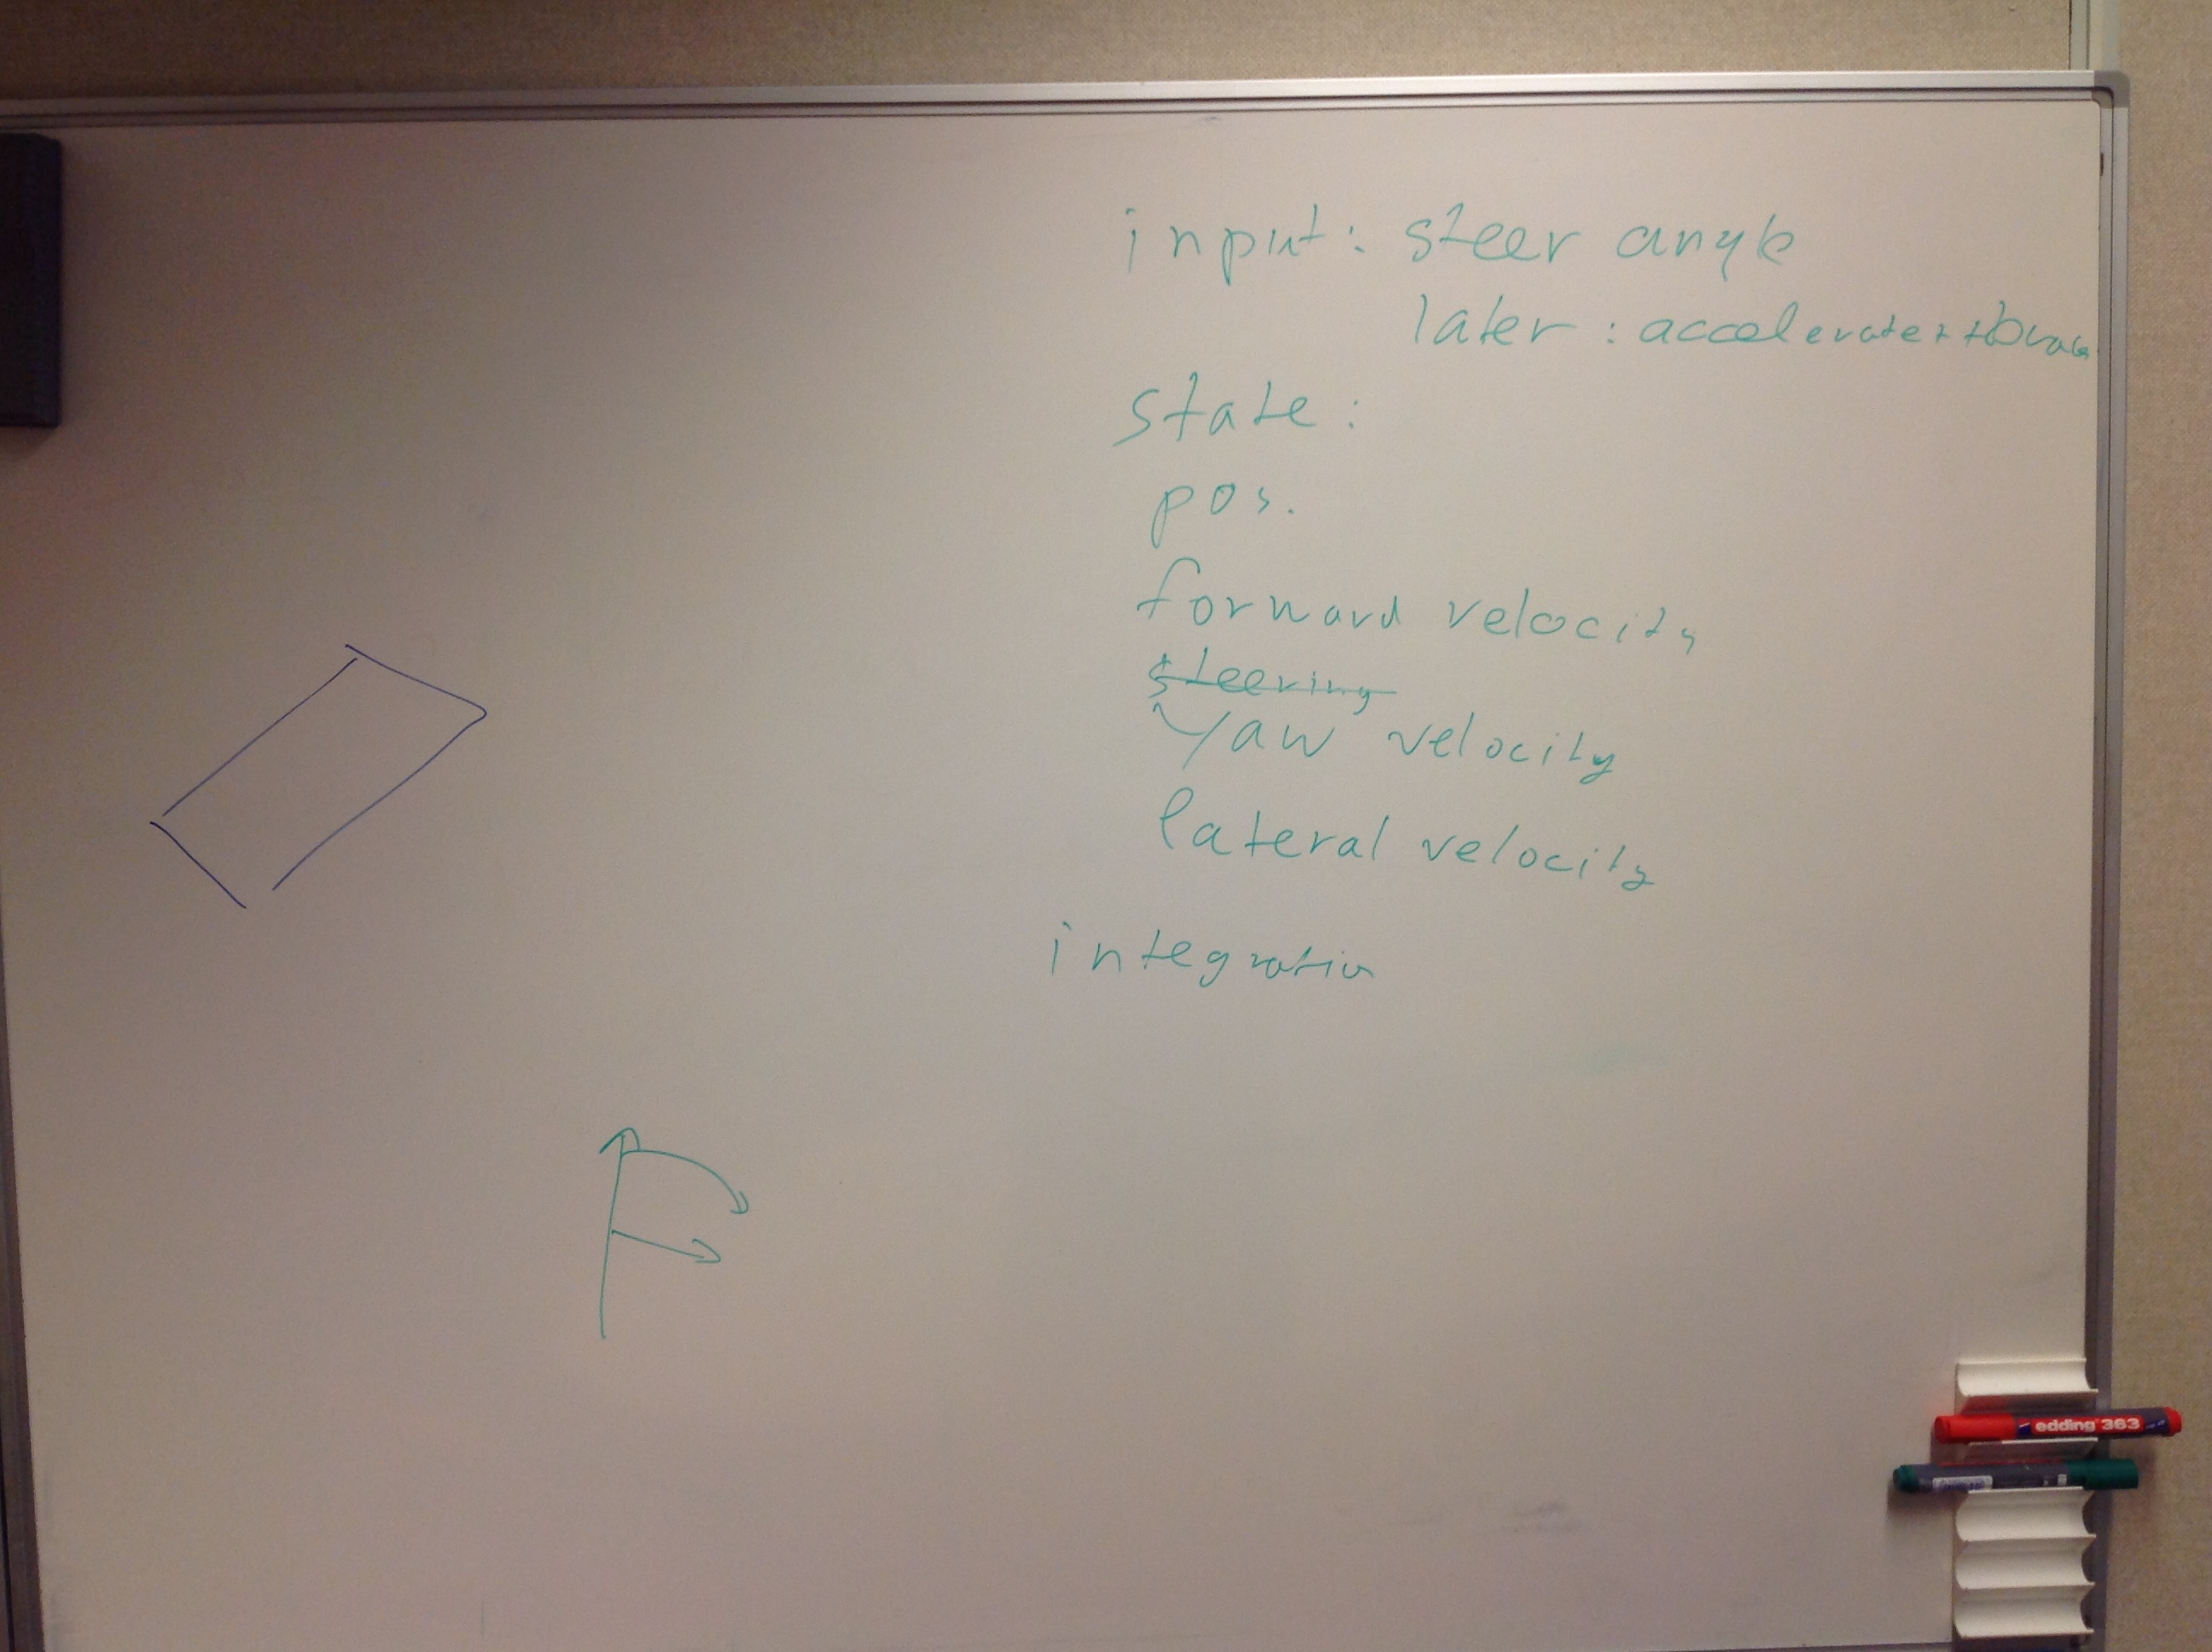 input: steer angle
later: accelerate + brake
state:
pos.
forward velocity
steering
yaw velocity
lateral velocity
integration
edding 363